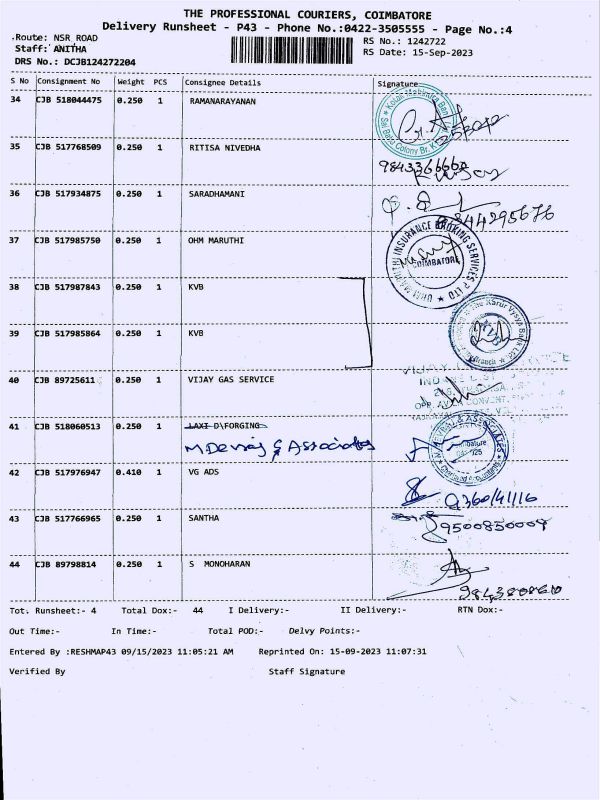 THE PROFESSIONAL COURIERS, COIMBATORE
Delivery Runsheet - P43 - Phone No.:0422-3505555 - Page No.:4
Route: NSR ROAD
RS No.: 1242722
Staff: ANITHA
RS Date: 15-Sep-2023
DRS No.: DCJB124272204
S No Consignment No Weight PCS Consignee Details Signature
34 CJB 518044475 0.250 1 RAMANARAYANAN
35 CJB 517768509 0.250 1 RITISA NIVEDHA
36 CJB 517934875 0.250 1 SARADHAMANI
37 CJB 517985750 0.250 1 OHM MARUTHI
INSURANCE BROKING SERVICES P LTD
COIMBATORE
38 CJB 517987843 0.250 1 KVB
39 CJB 517985864 0.250 1 KVB
40 CJB 89725611 0.250 1 VIJAY GAS SERVICE
VIJAY
41 CJB 518060513 0.250 1 LAXI D\FORGING
M Devraj & Associates
42 CJB 517976947 0.410 1 VG ADS
43 CJB 517766965 0.250 1 SANTHA
9500850009
44 CJB 89798814 0.250 1 S MONOHARAN
Tot. Runsheet:- 4 Total Dox:- 44 I Delivery:- II Delivery:- RTN Dox:-
Out Time:- In Time:- Total POD:- Delvy Points:-
Entered By :RESHMAP43 09/15/2023 11:05:21 AM Reprinted On: 15-09-2023 11:07:31
Verified By Staff Signature